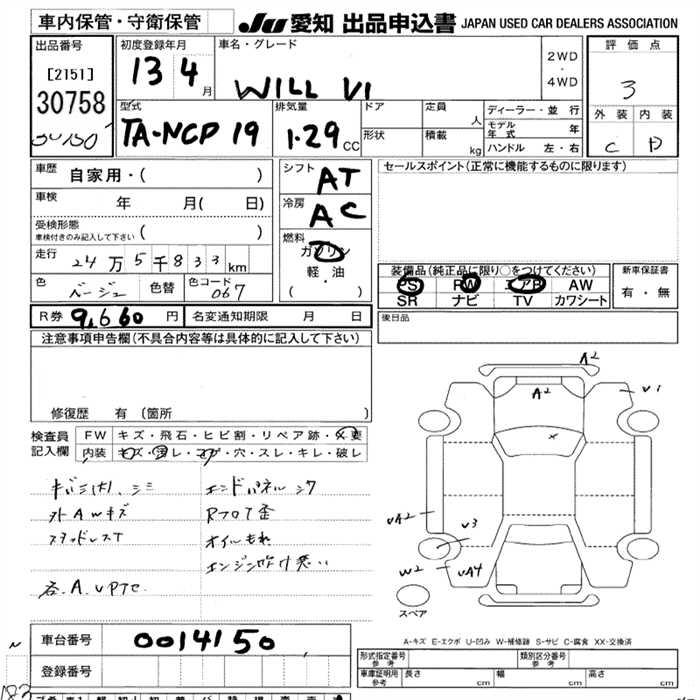 車内保管・守衛保管
JU 愛知 出品申込書 JAPAN USED CAR DEALERS ASSOCIATION
出品番号
[2151]
30758
初度登録年月
13 4 月
車名・グレード
WILL VI
2WD
・
4WD
評価点
3
外装 内装
C D
型式
TA-NCP 19
排気量
1.29 CC
ドア
形状
定員 人
積載 kg
ディーラー・並行
モデル年式 年
ハンドル 左・右
車歴 自家用・( )
車検 年 月( 日)
受検形態
車検付きのみ記入して下さい ( )
走行 24万5千833km
色 ベージュ 色替 色コード 067
シフト AT
冷房 AC
燃料
ガソリン
軽・油
( ・ )
セールスポイント(正常に機能するものに限ります)
装備品(純正品に限り○をつけてください)
PS PW エアB AW
SR ナビ TV カワシート
新車保証書
有・無
R券 9,660円 名変通知期限 月 日
後日品
注意事項申告欄(不具合内容等は具体的に記入して下さい)
修復歴 有(箇所 )
検査員記入欄
FW キズ・飛石・ヒビ割・リペア跡・X要
内装 キズ・汚レ・コゲ・穴・スレ・キレ・破レ
外AWキズ
スタッドレスT
各.A.UPTC.
エンドパネルシワ
Rフロア歪
オイルもれ
エンジン吹け悪い
A2
A2
V1
X
UA2
V3
W2
UA4
スペア
A-キズ E-エクボ U-凹み W-補修跡 S-サビ C-腐食 XX-交換済
車台番号 0014150
登録番号
形式指定番号
参考
類別区分番号
参考
車庫証明用
参考
長さ cm 幅 cm 高さ cm